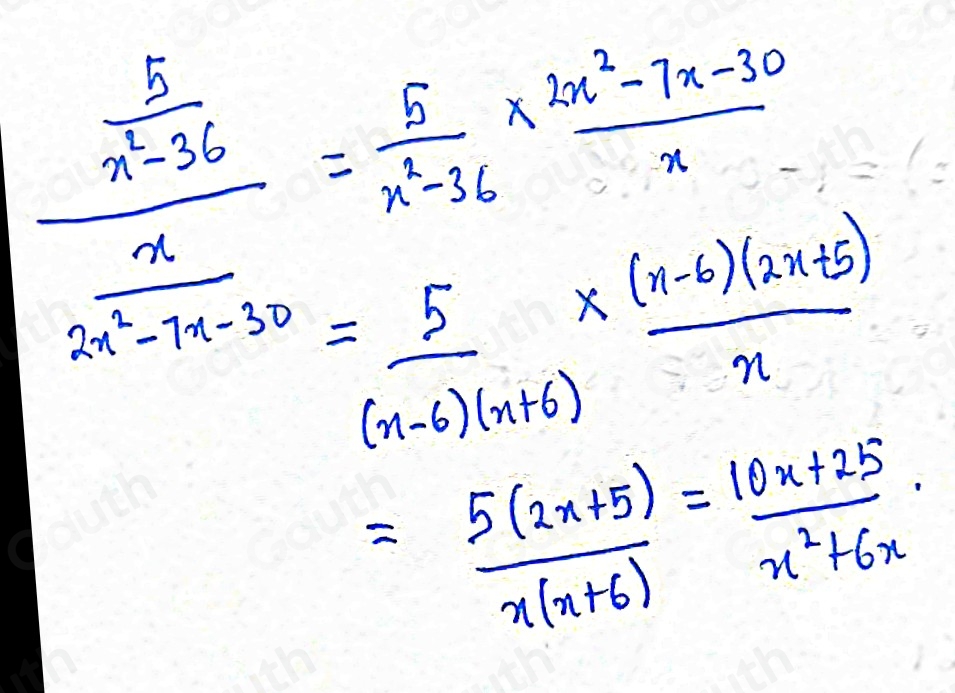 5/(x²-36) / x/(2x²-7x-30) = 5/(x²-36) × (2x²-7x-30)/x
= 5/((x-6)(x+6)) × ((x-6)(2x+5))/x
= 5(2x+5)/(x(x+6)) = (10x+25)/(x²+6x).
Gauth